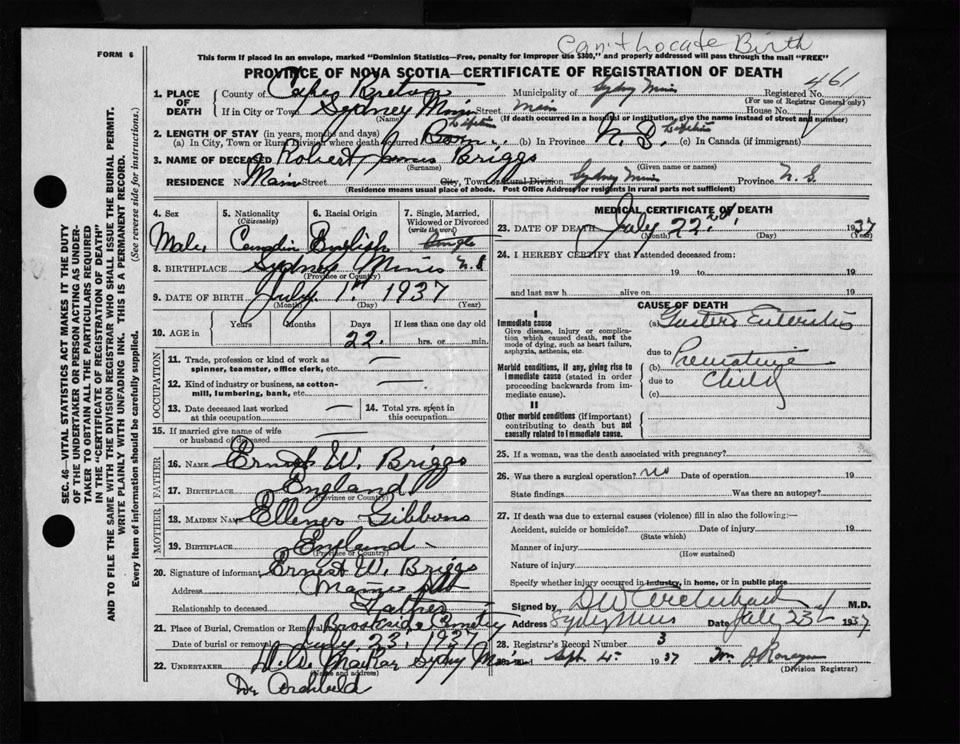 Can't locate Birth
FORM 6
This form if placed in an envelope, marked "Dominion Statistics—Free, penalty for improper use $300," and properly addressed will pass through the mail "FREE"
PROVINCE OF NOVA SCOTIA—CERTIFICATE OF REGISTRATION OF DEATH
461
1. PLACE OF DEATH
County of Cape Breton Municipality of Sydney Mines Registered No.
(For use of Registrar General only)
If in City or Town Sydney Mines Street Main House No.
(Name) (If death occurred in a hospital or institution, give the name instead of street and number)
2. LENGTH OF STAY (in years, months and days)
(a) In City, Town or Rural Division where death occurred Born Lifetime (b) In Province N.S. Lifetime (c) In Canada (if immigrant)
3. NAME OF DECEASED Robert James Briggs
(Surname) (Given name or names)
RESIDENCE No. Main Street City, Town or Rural Division Sydney Mines Province N.S.
(Residence means usual place of abode. Post Office Address for residents in rural parts not sufficient)
4. Sex
Male
5. Nationality
(Citizenship)
6. Racial Origin
English
7. Single, Married, Widowed or Divorced
(write the word)
Single
8. BIRTHPLACE Sydney Mines N.S
(Province or Country)
9. DATE OF BIRTH July 1st 1937
(Month) (Day) (Year)
10. AGE in
Years Months Days If less than one day old
22 hrs. or min.
OCCUPATION
11. Trade, profession or kind of work as spinner, teamster, office clerk, etc. —
12. Kind of industry or business, as cotton-mill, lumbering, bank, etc. —
13. Date deceased last worked at this occupation —
14. Total yrs. spent in this occupation
15. If married give name of wife or husband of deceased —
FATHER
16. NAME Ernest W. Briggs
17. BIRTHPLACE England
(Province or Country)
MOTHER
18. MAIDEN NAME Ellener Gibbons
19. BIRTHPLACE England
(Province or Country)
20. Signature of informant Ernest W. Briggs
Address Main St
Relationship to deceased Father
21. Place of Burial, Cremation or Removal Brookside Cemetery
Date of burial or removal July 23, 1937
22. UNDERTAKER Sydney Mines
(Name and address)
Dr Archibald
MEDICAL CERTIFICATE OF DEATH
23. DATE OF DEATH July 22nd 1937
(Month) (Day) (Year)
24. I HEREBY CERTIFY that I attended deceased from:
19 to 19
and last saw h alive on 19
CAUSE OF DEATH
I
Immediate cause
Give disease, injury or complication which caused death, not the mode of dying, such as heart failure, asphyxia, asthenia, etc.
(a) Gastero Enteritis
due to
Morbid conditions, if any, giving rise to immediate cause (stated in order proceeding backwards from immediate cause).
(b) Premature
due to child
(c)
II
Other morbid conditions (if important) contributing to death but not causally related to immediate cause.
25. If a woman, was the death associated with pregnancy?
26. Was there a surgical operation? no Date of operation 19
State findings Was there an autopsy?
27. If death was due to external causes (violence) fill in also the following:—
Accident, suicide or homicide? Date of injury 19
(State which)
Manner of injury
(How sustained)
Nature of injury
Specify whether injury occurred in industry, in home, or in public place
Signed by D W Archibald M.D.
Address Sydney Mines Date July 23rd 1937
28. Registrar's Record Number 3
Filed Sept 4 1937
(Division Registrar)
SEC. 46—VITAL STATISTICS ACT MAKES IT THE DUTY
OF THE UNDERTAKER OR PERSON ACTING AS UNDERTAKER TO OBTAIN ALL THE PARTICULARS REQUIRED
IN THE "CERTIFICATE OF REGISTRATION OF DEATH"
AND TO FILE THE SAME WITH THE DIVISION REGISTRAR WHO SHALL ISSUE THE BURIAL PERMIT.
WRITE PLAINLY WITH UNFADING INK. THIS IS A PERMANENT RECORD.
Every item of information should be carefully supplied. (See reverse side for instructions.)